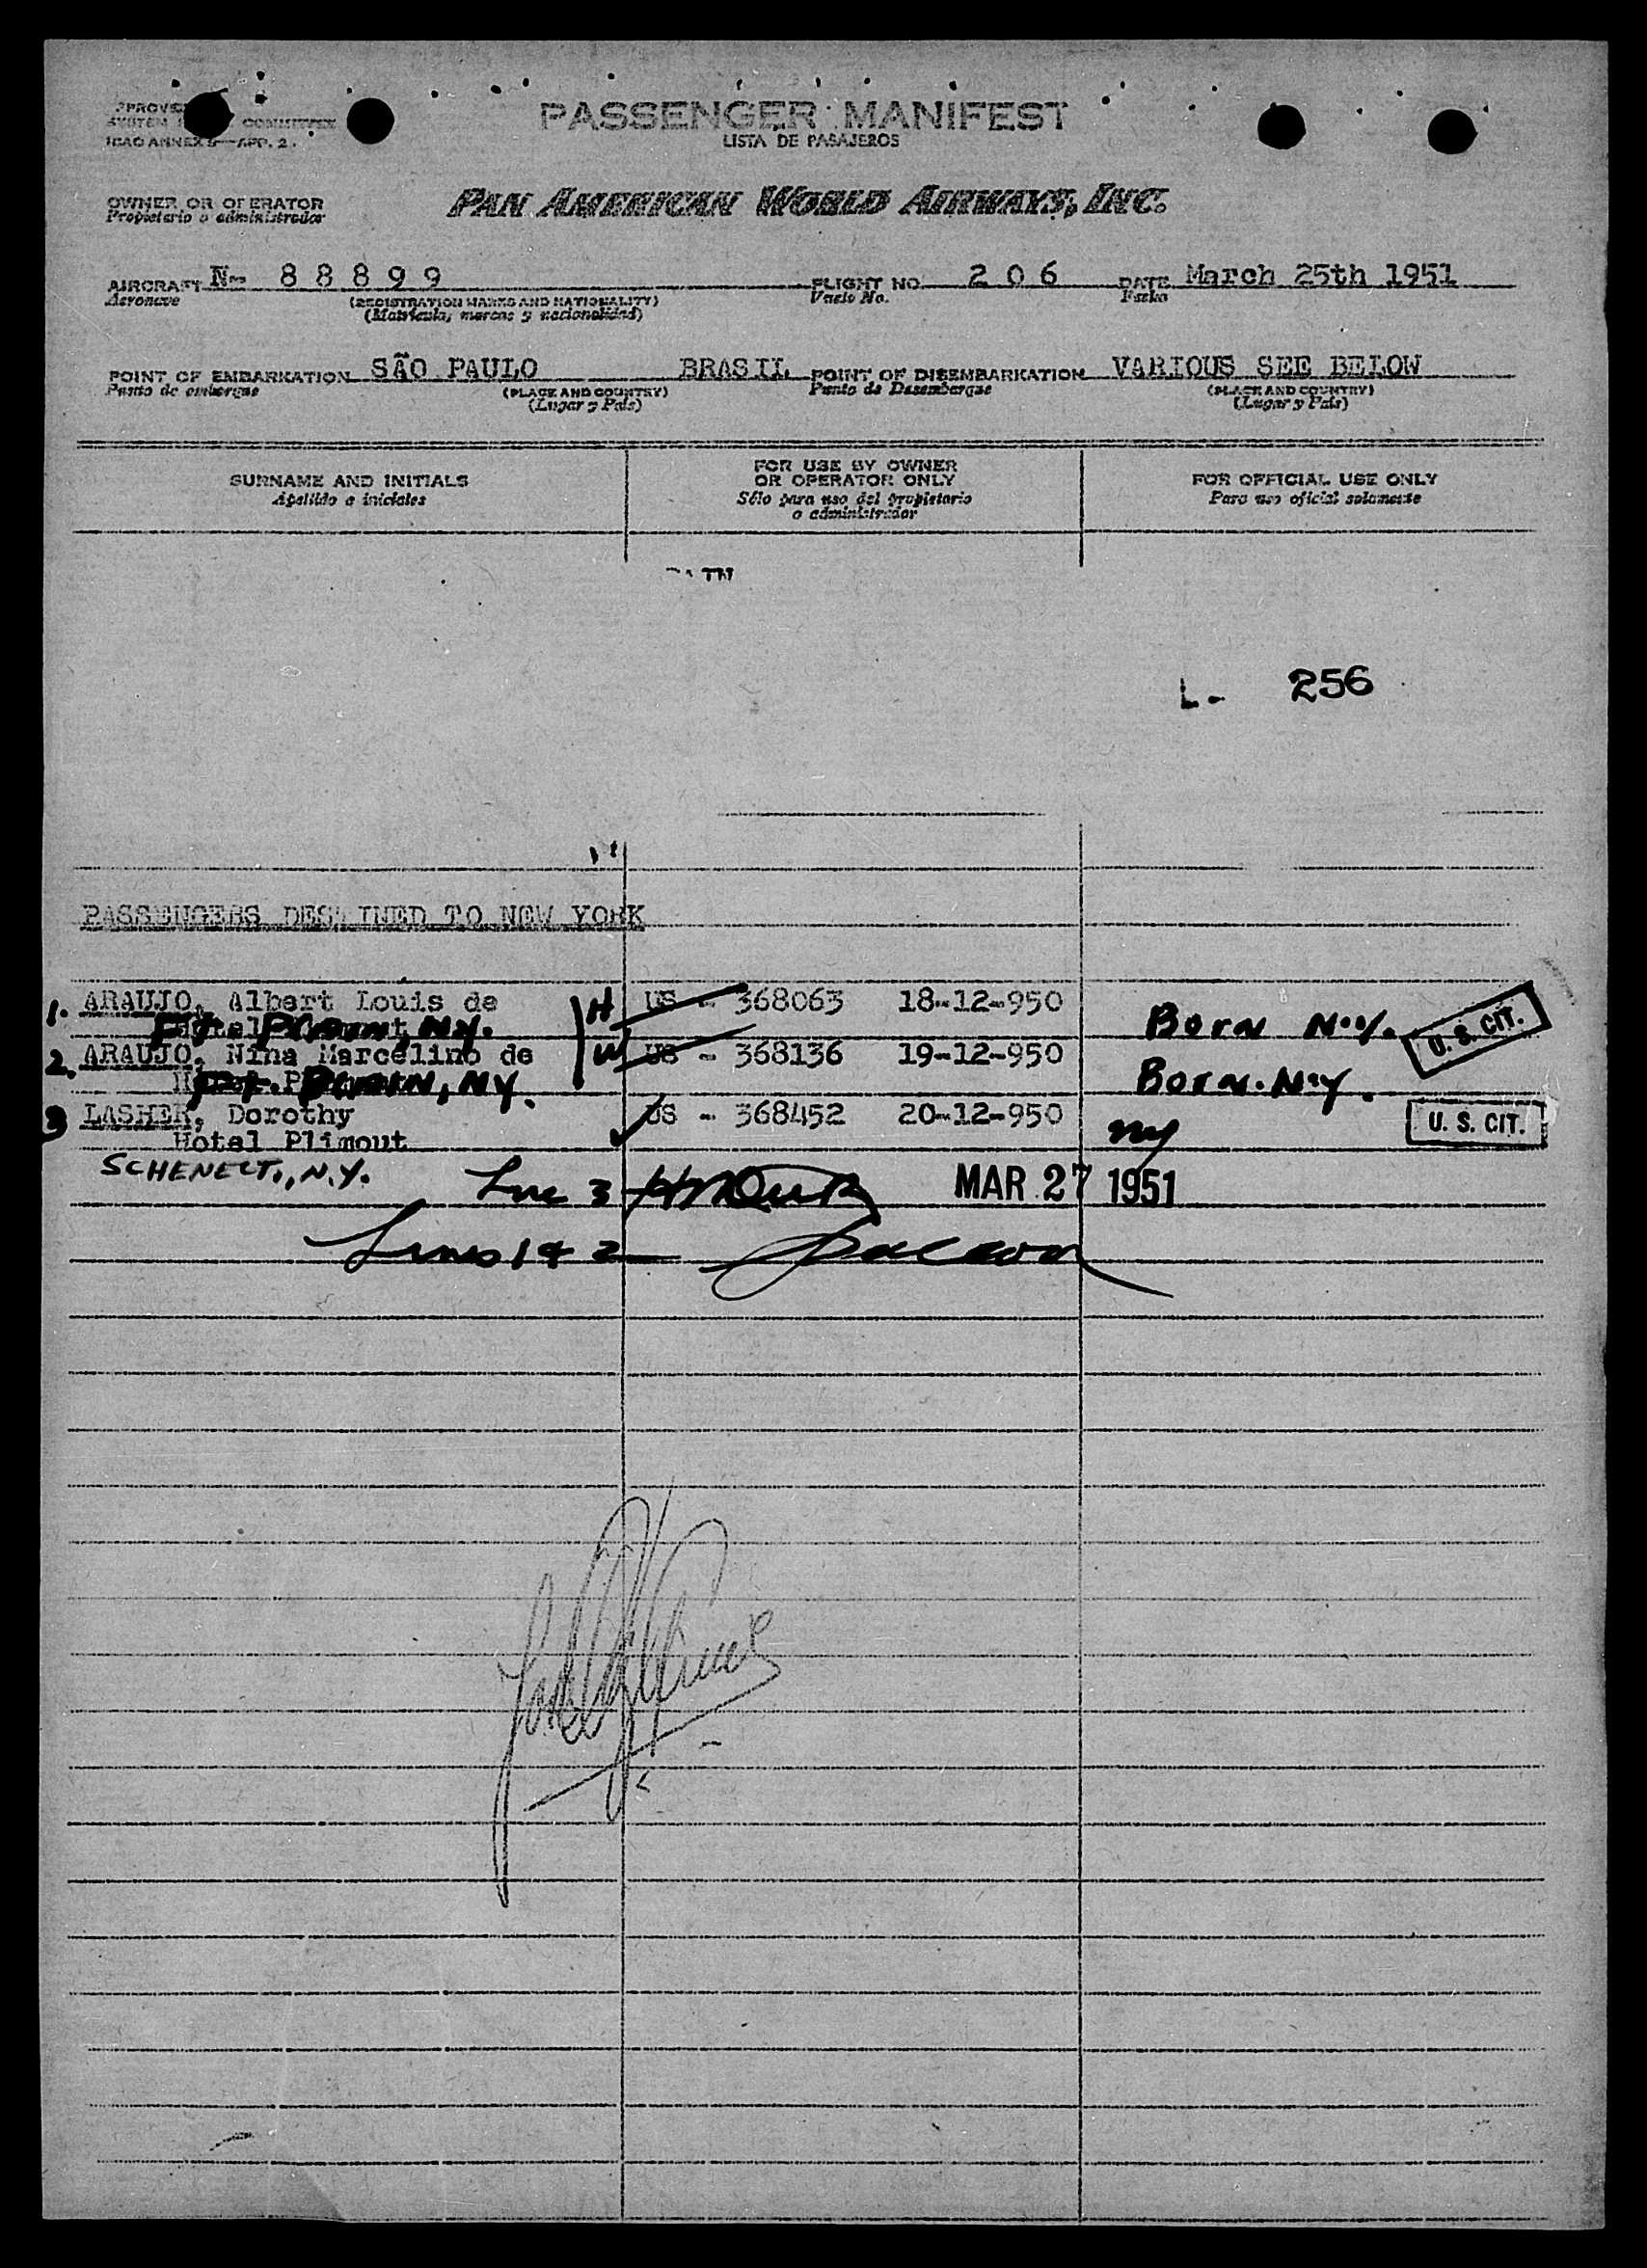 PASSENGER MANIFEST
LISTA DE PASAJEROS
ICAO ANNEX 9—APP. 2.
OWNER OR OPERATOR
Propietario o administrador
PAN AMERICAN WORLD AIRWAYS, INC.
AIRCRAFT N- 8 8 8 9 9 FLIGHT NO. 2 0 6 DATE March 25th 1951
Aeronave (REGISTRATION MARKS AND NATIONALITY) Vuelo No. Fecha
(Matrícula, marcas y nacionalidad)
POINT OF EMBARKATION SÃO PAULO BRASIL POINT OF DISEMBARKATION VARIOUS SEE BELOW
Punto de embarque (PLACE AND COUNTRY) Punto de Desembarque (PLACE AND COUNTRY)
(Lugar y País) (Lugar y País)
SURNAME AND INITIALS FOR USE BY OWNER OR OPERATOR ONLY FOR OFFICIAL USE ONLY
Apellido e iniciales Sólo para uso del propietario o administrador Para uso oficial solamente
L- 256
PASSENGERS DESTINED TO NEW YORK
1. ARAUJO, Albert Louis de H US - 368063 18-12-950
FT. PLAIN, N.Y. Born N.Y. U. S. CIT.
2. ARAUJO, Nina Marcelino de W US - 368136 19-12-950
FT. PLAIN, NY. Born N.Y.
3 LASHER, Dorothy US - 368452 20-12-950 U. S. CIT.
Hotel Plimout NY
SCHENECT., N.Y. Line 3 MAR 27 1951
Lines 1 & 2